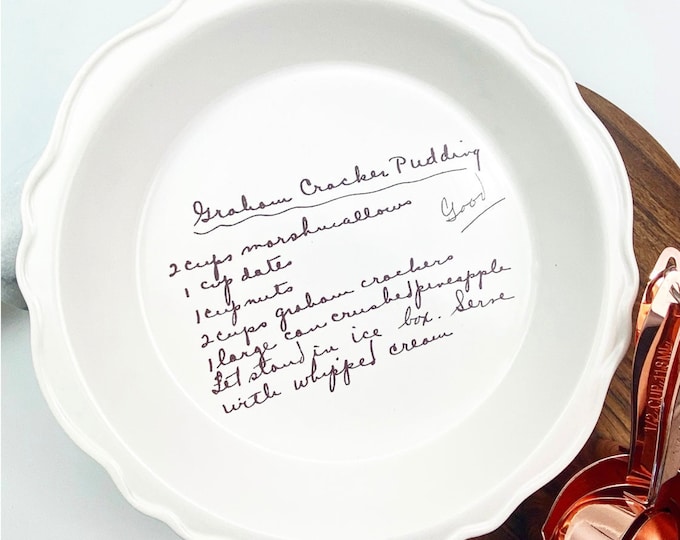 Graham Cracker Pudding
Good
2 cups marshmallows
1 cup dates
1 cup nuts
2 cups graham crackers
1 large can crushed pineapple
Let stand in ice box. Serve
with whipped cream
1/2 CUP 118ML